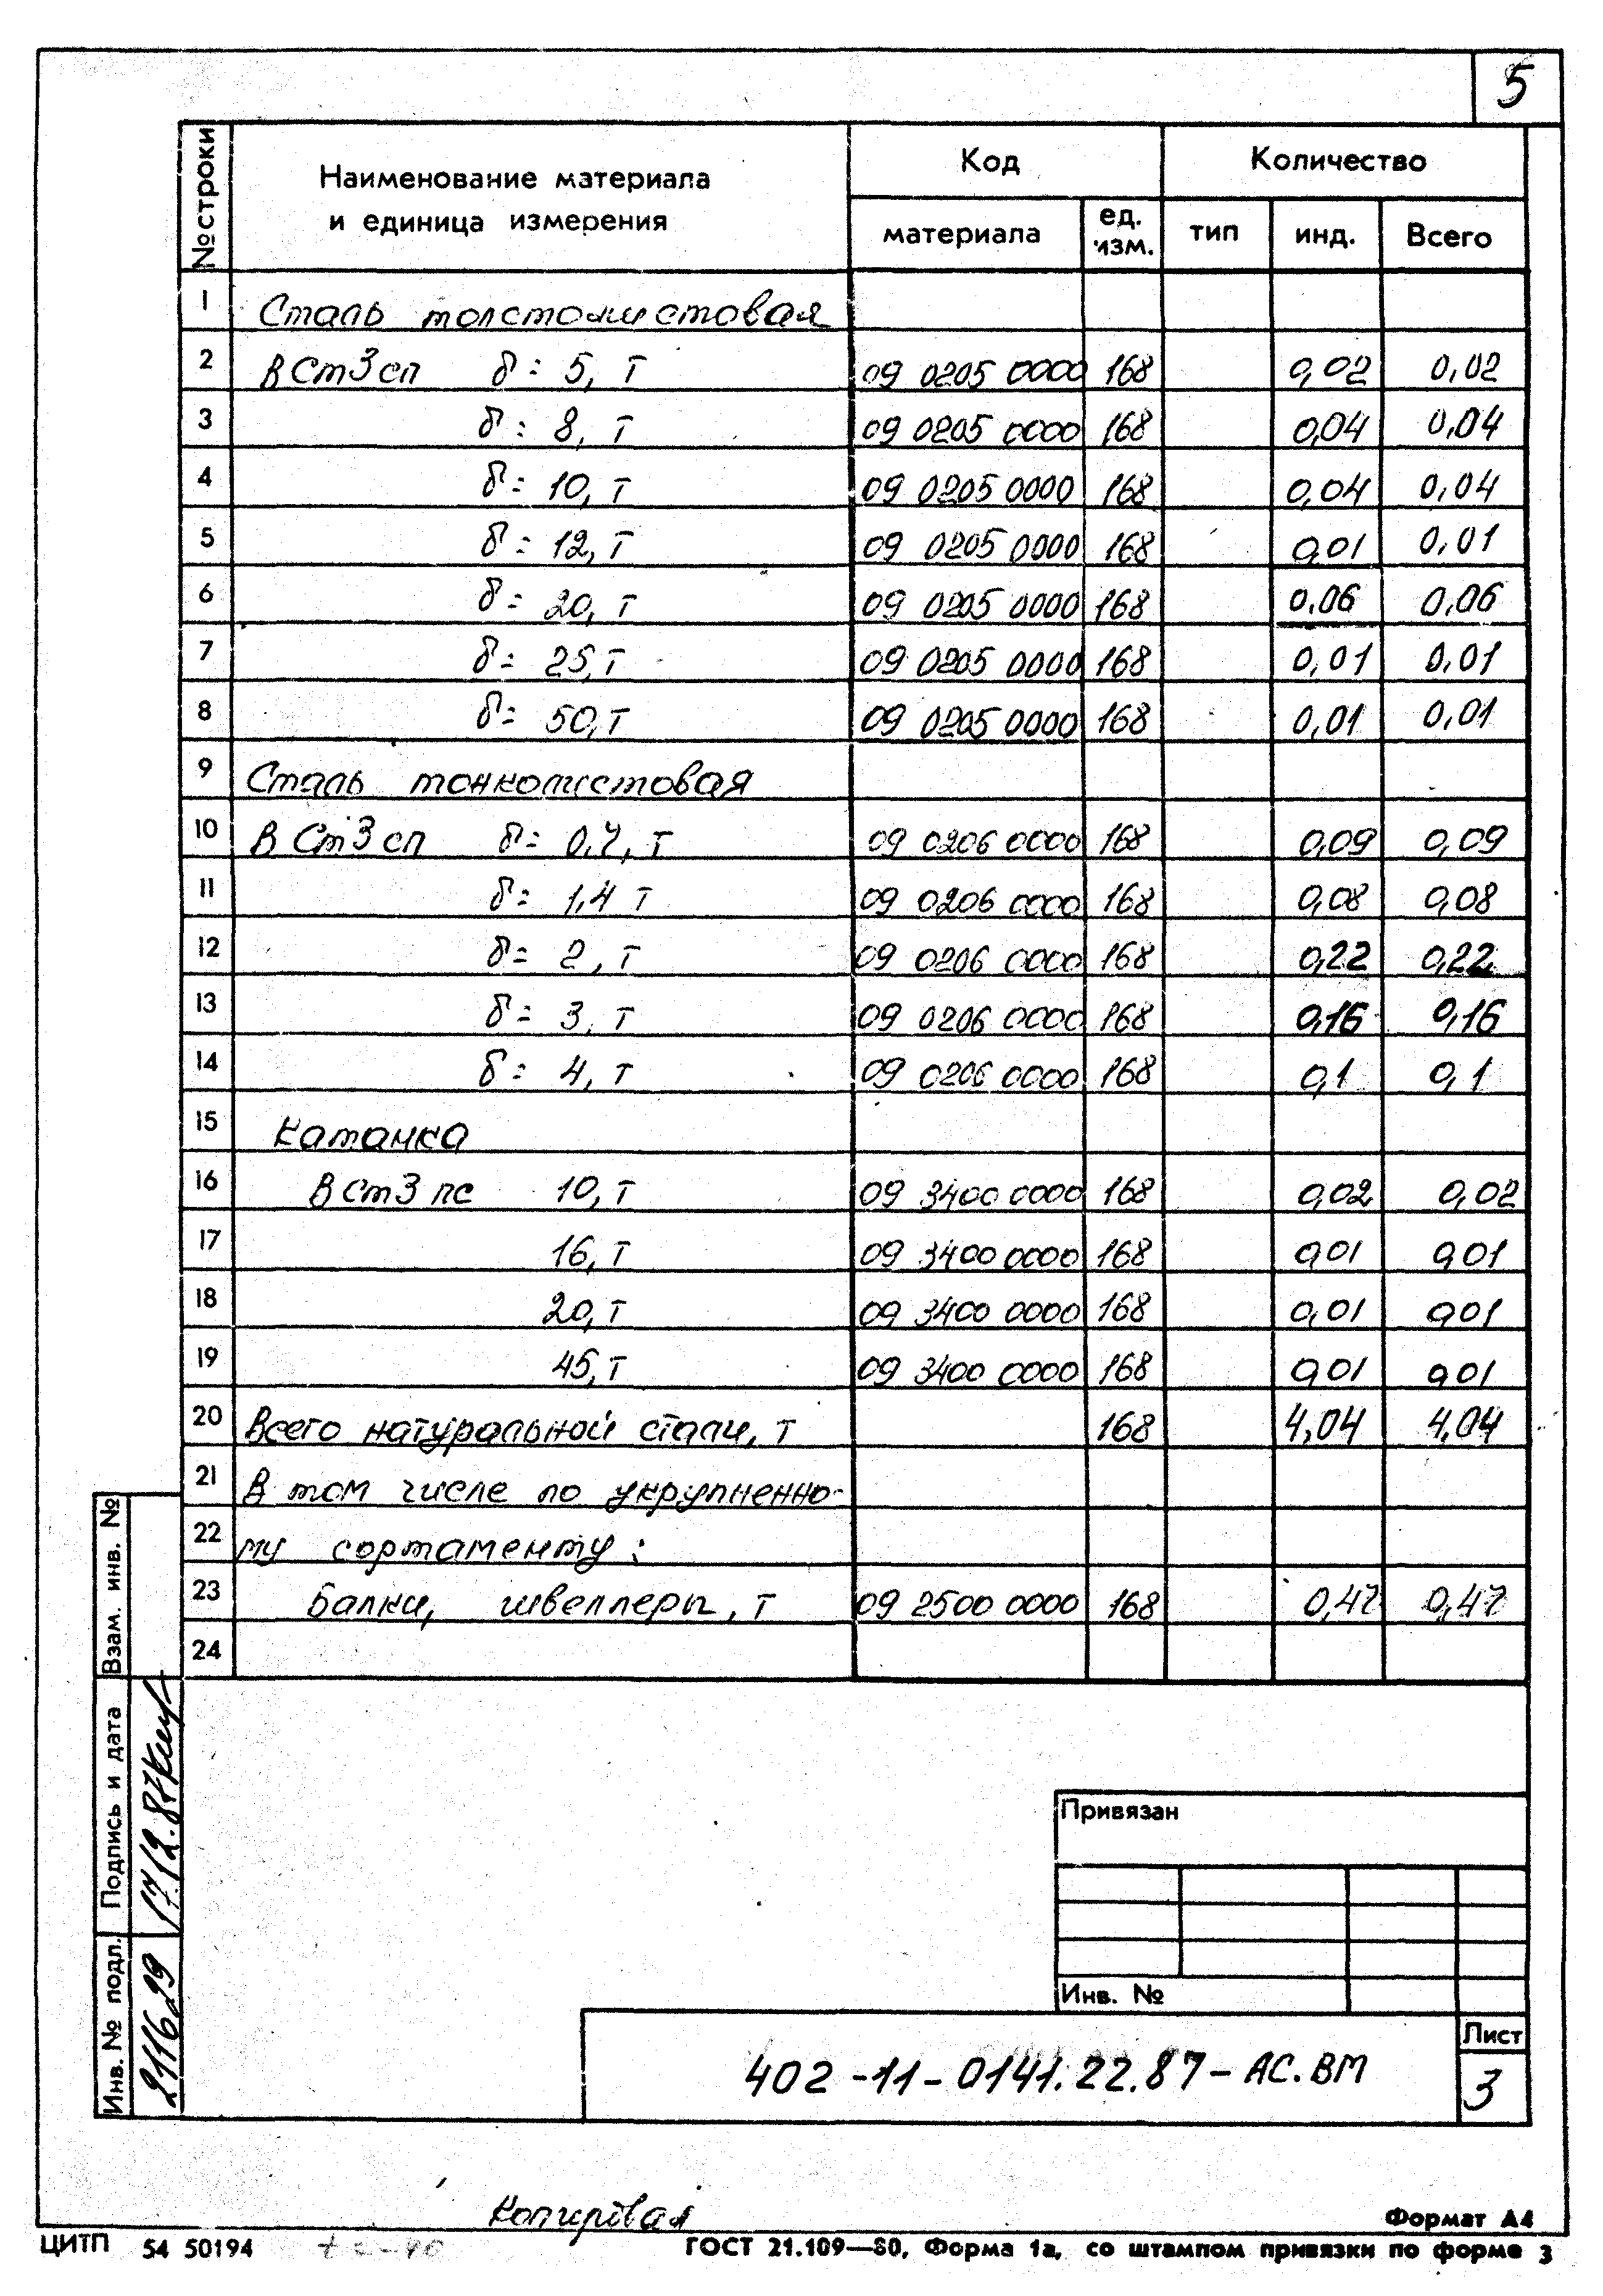 5
№ строки
Наименование материала
и единица измерения
Код
Количество
материала
ед. изм.
тип
инд.
Всего
1 Сталь толстолистовая
2 ВСт3сп δ= 5, т 09 0205 0000 168 0,02 0,02
3 δ= 8, т 09 0205 0000 168 0,04 0,04
4 δ= 10, т 09 0205 0000 168 0,04 0,04
5 δ= 12, т 09 0205 0000 168 0,01 0,01
6 δ= 20, т 09 0205 0000 168 0,06 0,06
7 δ= 25, т 09 0205 0000 168 0,01 0,01
8 δ= 50, т 09 0205 0000 168 0,01 0,01
9 Сталь тонколистовая
10 ВСт3сп δ= 0,7, т 09 0206 0000 168 0,09 0,09
11 δ= 1,4 т 09 0206 0000 168 0,08 0,08
12 δ= 2, т 09 0206 0000 168 0,22 0,22
13 δ= 3, т 09 0206 0000 168 0,16 0,16
14 δ= 4, т 09 0206 0000 168 0,1 0,1
15 Катанка
16 ВСт3пс 10, т 09 3400 0000 168 0,02 0,02
17 16, т 09 3400 0000 168 0,01 0,01
18 20, т 09 3400 0000 168 0,01 0,01
19 45, т 09 3400 0000 168 0,01 0,01
20 Всего натуральной стали, т 168 4,04 4,04
21 В том числе по укрупненно-
22 му сортаменту:
23 Балки, швеллеры, т 09 2500 0000 168 0,47 0,47
24
Взам. инв. №
Подпись и дата
17.12.87
Инв. № подл.
Привязан
Инв. №
402-11-0141.22.87-АС.ВМ
Лист
3
Копировал
Формат А4
ЦИТП 54 50194
ГОСТ 21.109—80, Форма 1а, со штампом привязки по форме 3